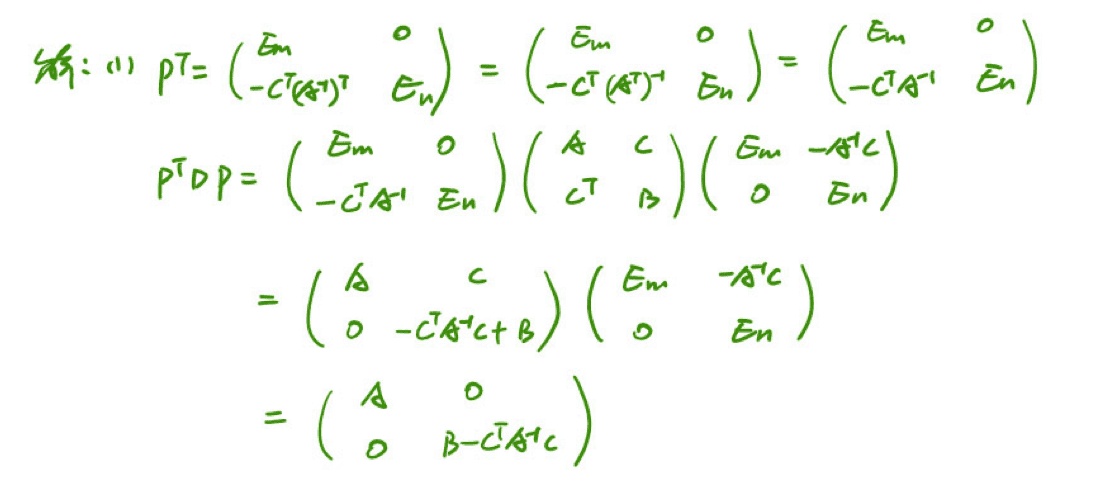 解: (1) Pᵀ = ( Eₘ 0 ; -Cᵀ(A⁻¹)ᵀ Eₙ ) = ( Eₘ 0 ; -Cᵀ(Aᵀ)⁻¹ Eₙ ) = ( Eₘ 0 ; -CᵀA⁻¹ Eₙ )
PᵀDP = ( Eₘ 0 ; -CᵀA⁻¹ Eₙ ) ( A C ; Cᵀ B ) ( Eₘ -A⁻¹C ; 0 Eₙ )
= ( A C ; 0 -CᵀA⁻¹C+B ) ( Eₘ -A⁻¹C ; 0 Eₙ )
= ( A 0 ; 0 B-CᵀA⁻¹C )